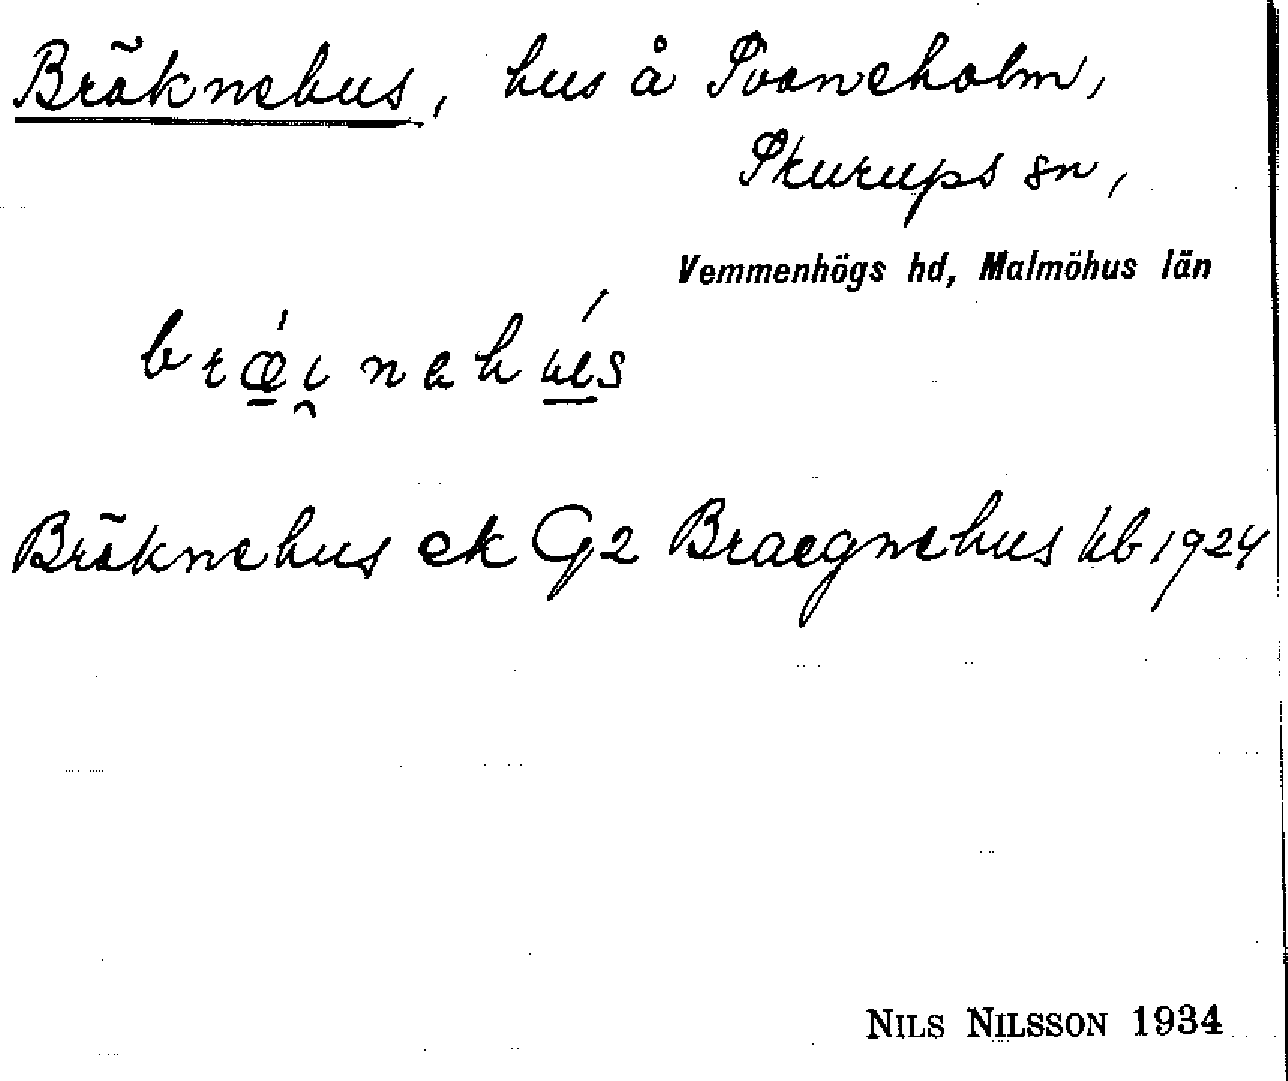 Bräknehus, hus å Svaneholm,
Skurups sn,
Vemmenhögs hd, Malmöhus län
bræ̀i̯nehúes
Bräknehus ek G2 Braegnehus kb 1924
NILS NILSSON 1934